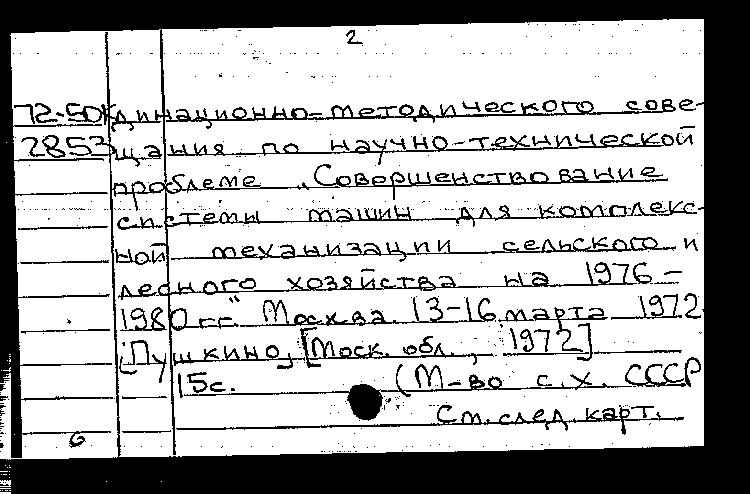 2
72-50к динационно-методического сове-
2853 щания по научно-технической
проблеме „Совершенствование
системы машин для комплекс-
ной механизации сельского и
лесного хозяйства на 1976–
1980 гг." Москва. 13-16 марта 1972
[Пушкино, [Моск. обл., 1972]
15с. (М-во с.х. СССР
См. след. карт.
6